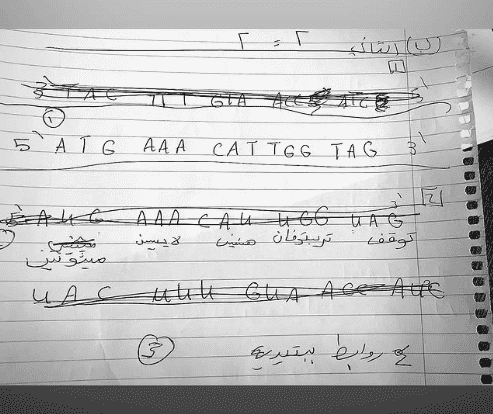 ب) الثاني ٢ = ٢
1
3` TAC TTT GTA ACC ATC 3`
1
5` ATG AAA CAT TGG TAG 3`
2
AUG AAA CAU UGG UAG 3`
ميثونين لايسين هستيدين تربتوفان توقف
UAC UUU GUA ACC AUC
3
روابط ببتيدية